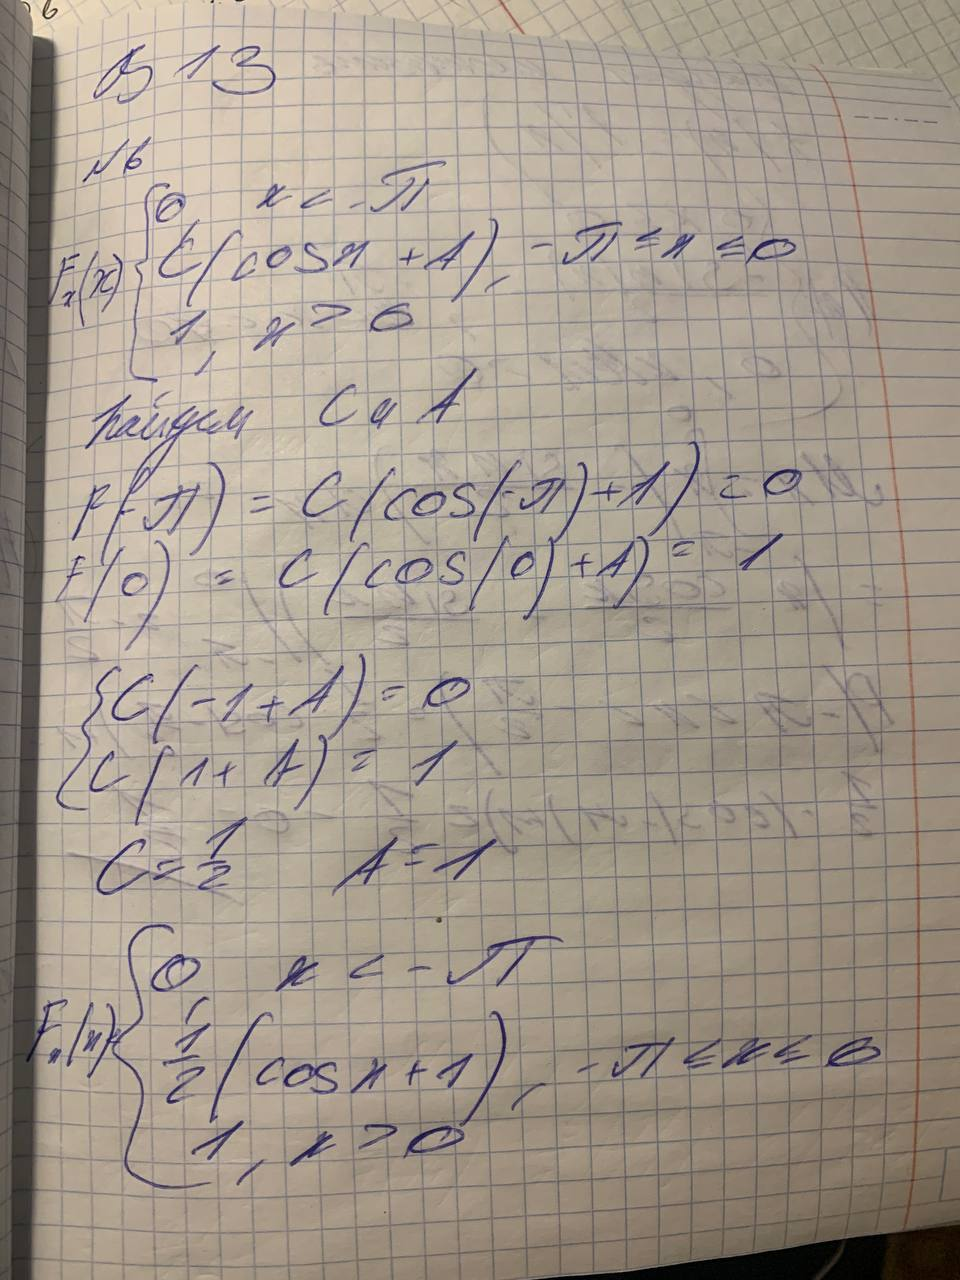 В 13
№6
0, x < -π
F_x(x) { C(cosx + A), -π ≤ x ≤ 0
1, x > 0
Найдем C и A
F(-π) = C(cos(-π)+1) = 0
F(0) = C(cos(0)+A) = 1
{ C(-1+A) = 0
C(1+A) = 1
C = 1/2 A = 1
0, x < -π
F_x(x) = { 1/2 (cosx+1), -π ≤ x ≤ 0
1, x > 0